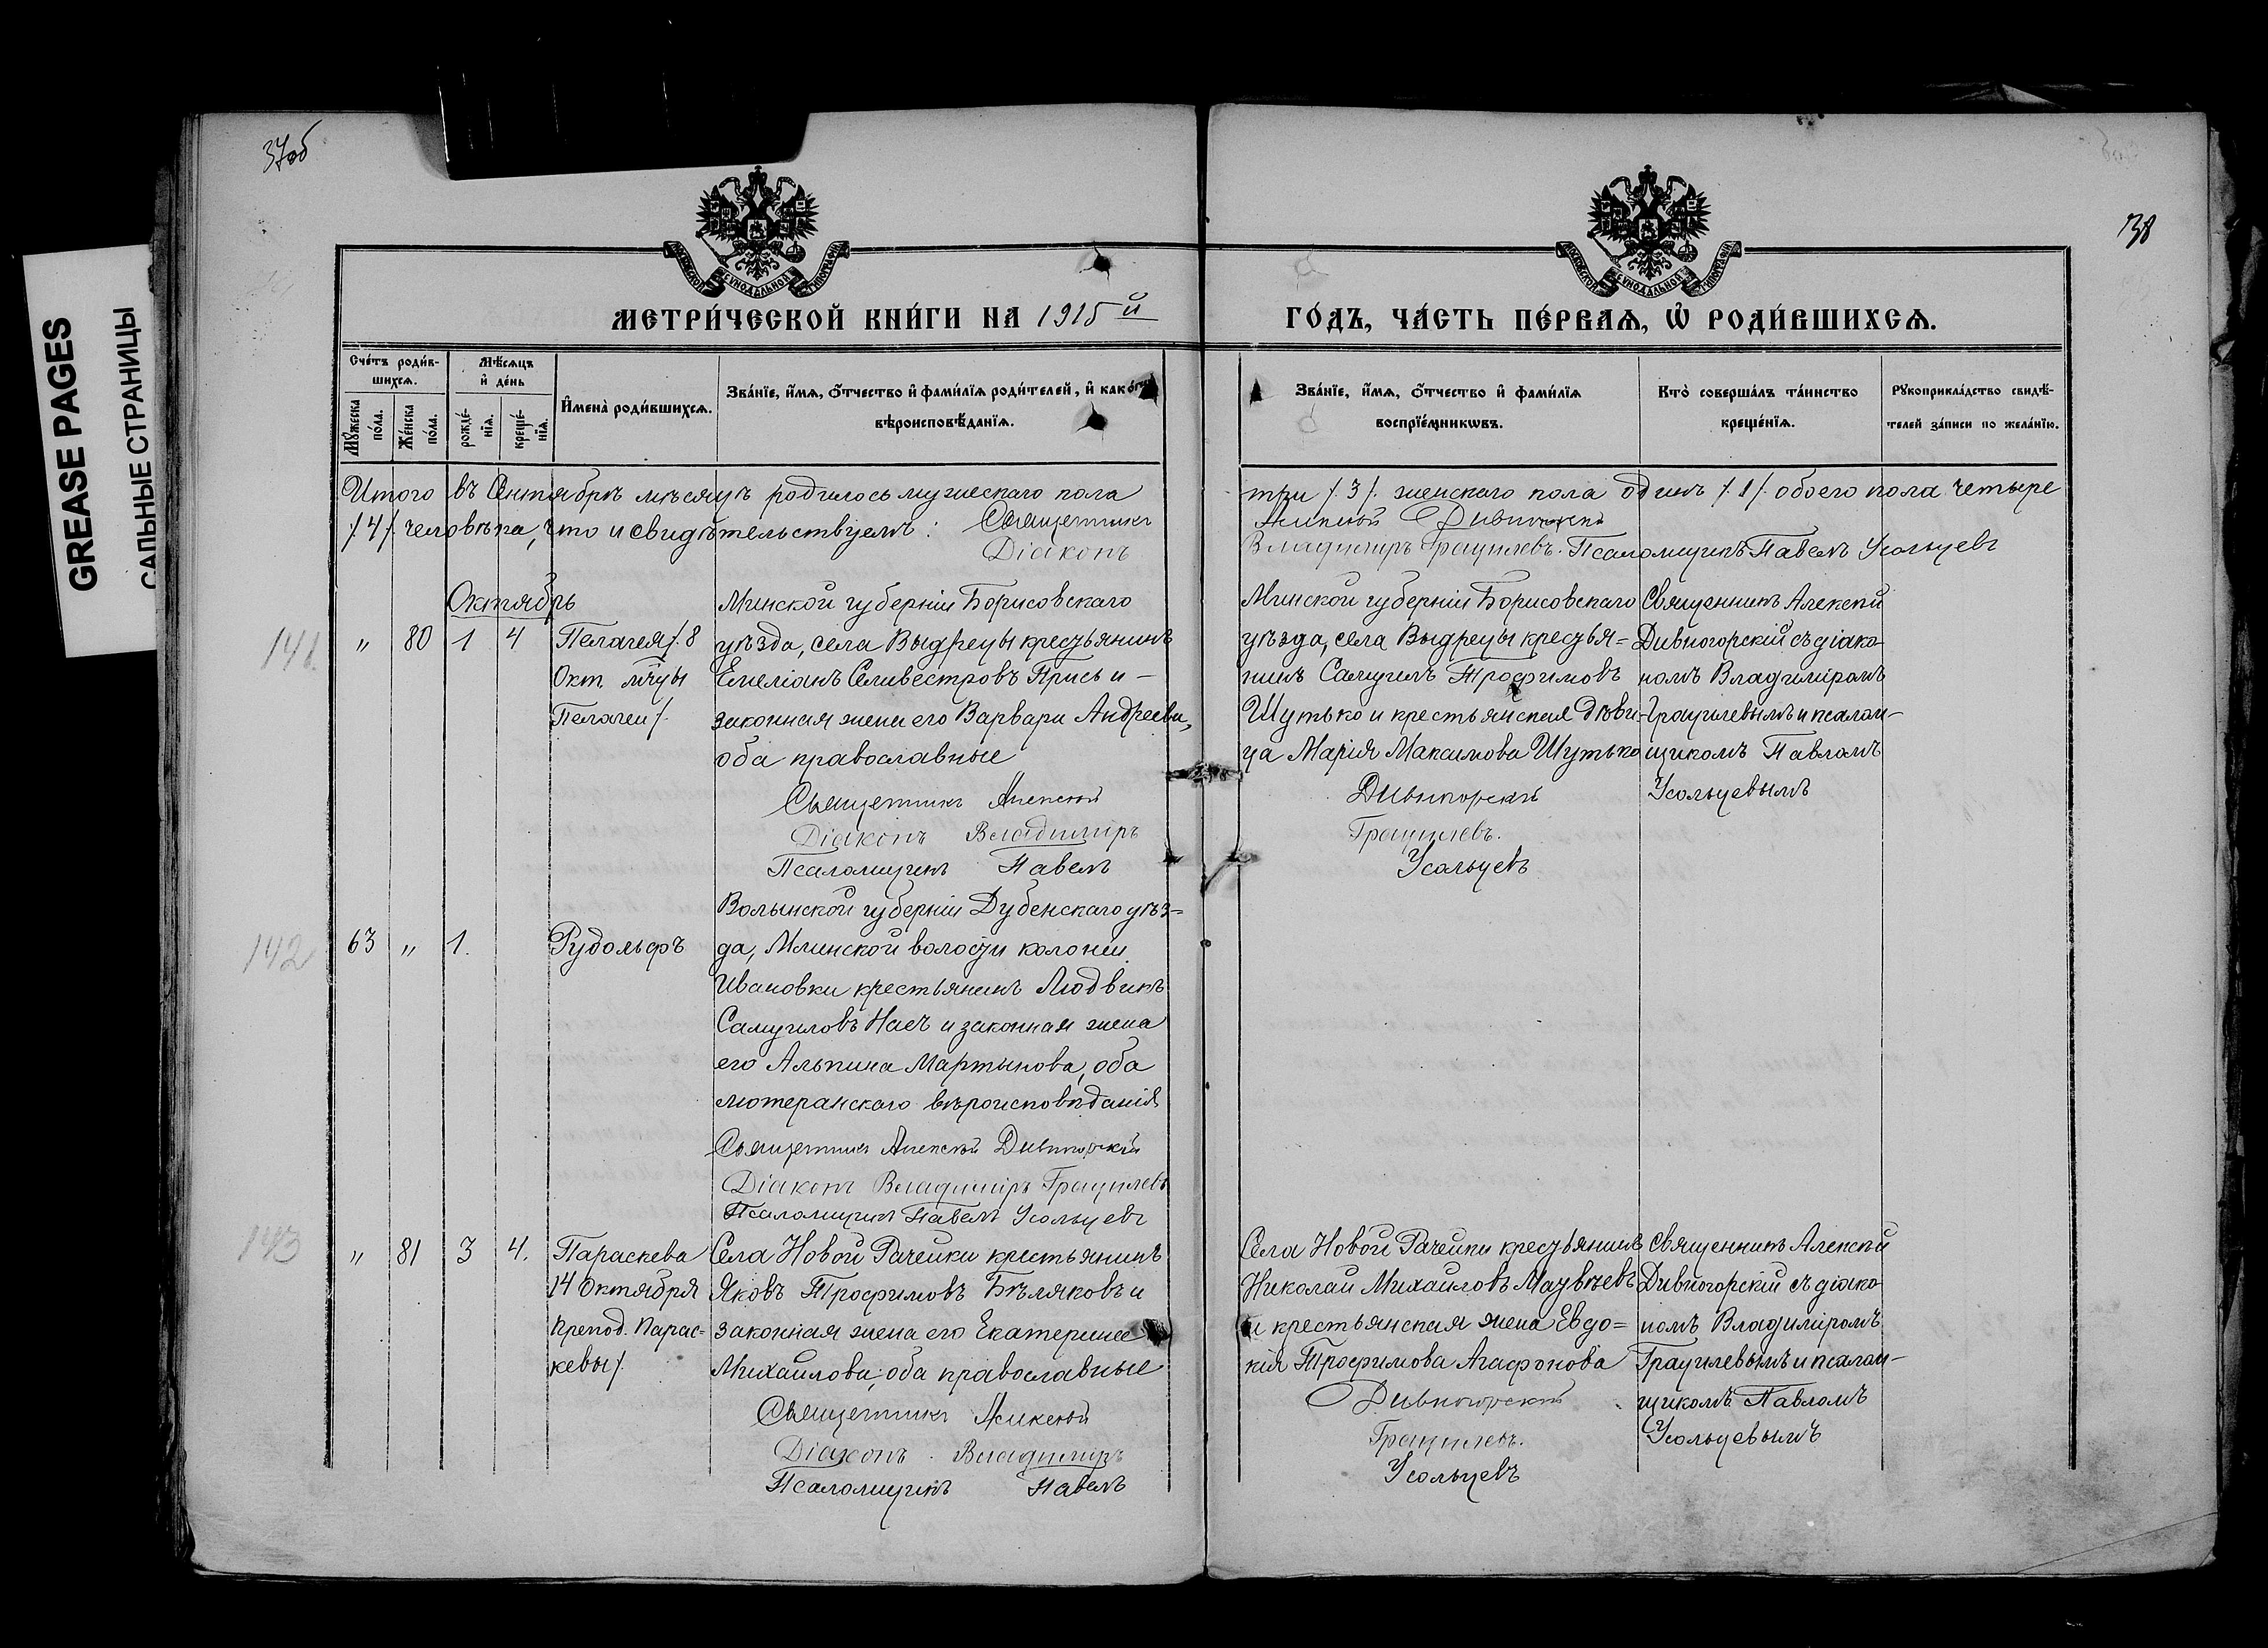 37об
38
GREASE PAGES
САЛЬНЫЕ СТРАНИЦЫ
МЕТРИ́ЧЕСКОЙ КНИ́ГИ НА 1915й ГО́ДЪ, ЧА́СТЬ ПЕ́РВАѦ, Ѽ РОДИ́ВШИХСѦ.
Счетъ роди́в-
шихсѧ.
Мѣсѧцъ
и҆ де́нь
Мꙋ́жеска
по́ла.
Же́нска
по́ла.
рожде́-
нїѧ.
креще́-
нїѧ.
И҆мена̀ роди́вшихсѧ.
Зва́нїе, и҆́мѧ, ѻ҆́тчество и҆ фами́лїѧ роди́телей, и҆ како́гѡ
вѣроисповѣ́данїѧ.
Зва́нїе, и҆́мѧ, ѻ҆́тчество и҆ фами́лїѧ
воспрїе́мникѡвъ.
Кто̀ соверша́лъ та́инство
креще́нїѧ.
Рꙋкоприкла́дство свидѣ́-
телей за́писи по жела́нїю.
Итого въ Сентябрѣ мѣсяцѣ родилось мужескаго пола три /3/ женскаго пола одинъ /1/ обоего пола четыре
/4/ человѣка, что и свидѣтельствуемъ: Священникъ Алексѣй Дивногорскій
Діаконъ Владиміръ Грацилевъ. Псаломщикъ Павелъ Усольцевъ
141.
Октябрь
" 80 1 4
Пелагея /8
Окт. мчцы
Пелагеи/.
Минской губерніи Борисовскаго
уѣзда, села Выдрецы крестьянинъ
Емеліанъ Селивестровъ Прись и –
законная жена его Варвара Андреева,
оба православные
Священникъ Алексѣй
Діаконъ Владиміръ
Псаломщикъ Павелъ
Минской губерніи Борисовскаго
уѣзда, села Выдрецы крестья=
нинъ Самуилъ Трофимовъ
Шутько и крестьянская дѣви-
ца Марія Максимова Шутько
Дивногорскій
Грацилевъ.
Усольцевъ
Священникъ Алексѣй
Дивногорскій съ діако-
номъ Владиміромъ
Грацилевымъ и псалом-
щикомъ Павломъ
Усольцевымъ
142
63 " 1.
Рудольфъ
Волынской губерніи Дубенскаго уѣз=
да, Млинской волости колоніи
Ивановки крестьянинъ Людвикъ
Самуиловъ Нагъ и законная жена
его Альпина Мартынова, оба
лютеранскаго вѣроисповѣданія
Священникъ Алексѣй Дивногорскій
Діаконъ Владиміръ Грацилевъ
Псаломщикъ Павелъ Усольцевъ
143
" 81 3 4.
Параскева
14 Октября
Препод. Парас=
кевы/.
Села Новой Рачейки крестьянинъ
Яковъ Трофимовъ Бѣляковъ и
законная жена его Екатерина
Михайлова, оба православные
Священникъ Алексѣй
Діаконъ Владиміръ
Псаломщикъ Павелъ
Села Новой Рачейки крестьянинъ
Николай Михайловъ Матвѣевъ
и крестьянская жена Евдо=
кія Трофимова Агафонова
Дивногорскій
Грацилевъ.
Усольцевъ
Священникъ Алексѣй
Дивногорскій съ діако-
номъ Владиміромъ
Грацилевымъ и псалом-
щикомъ Павломъ
Усольцевымъ